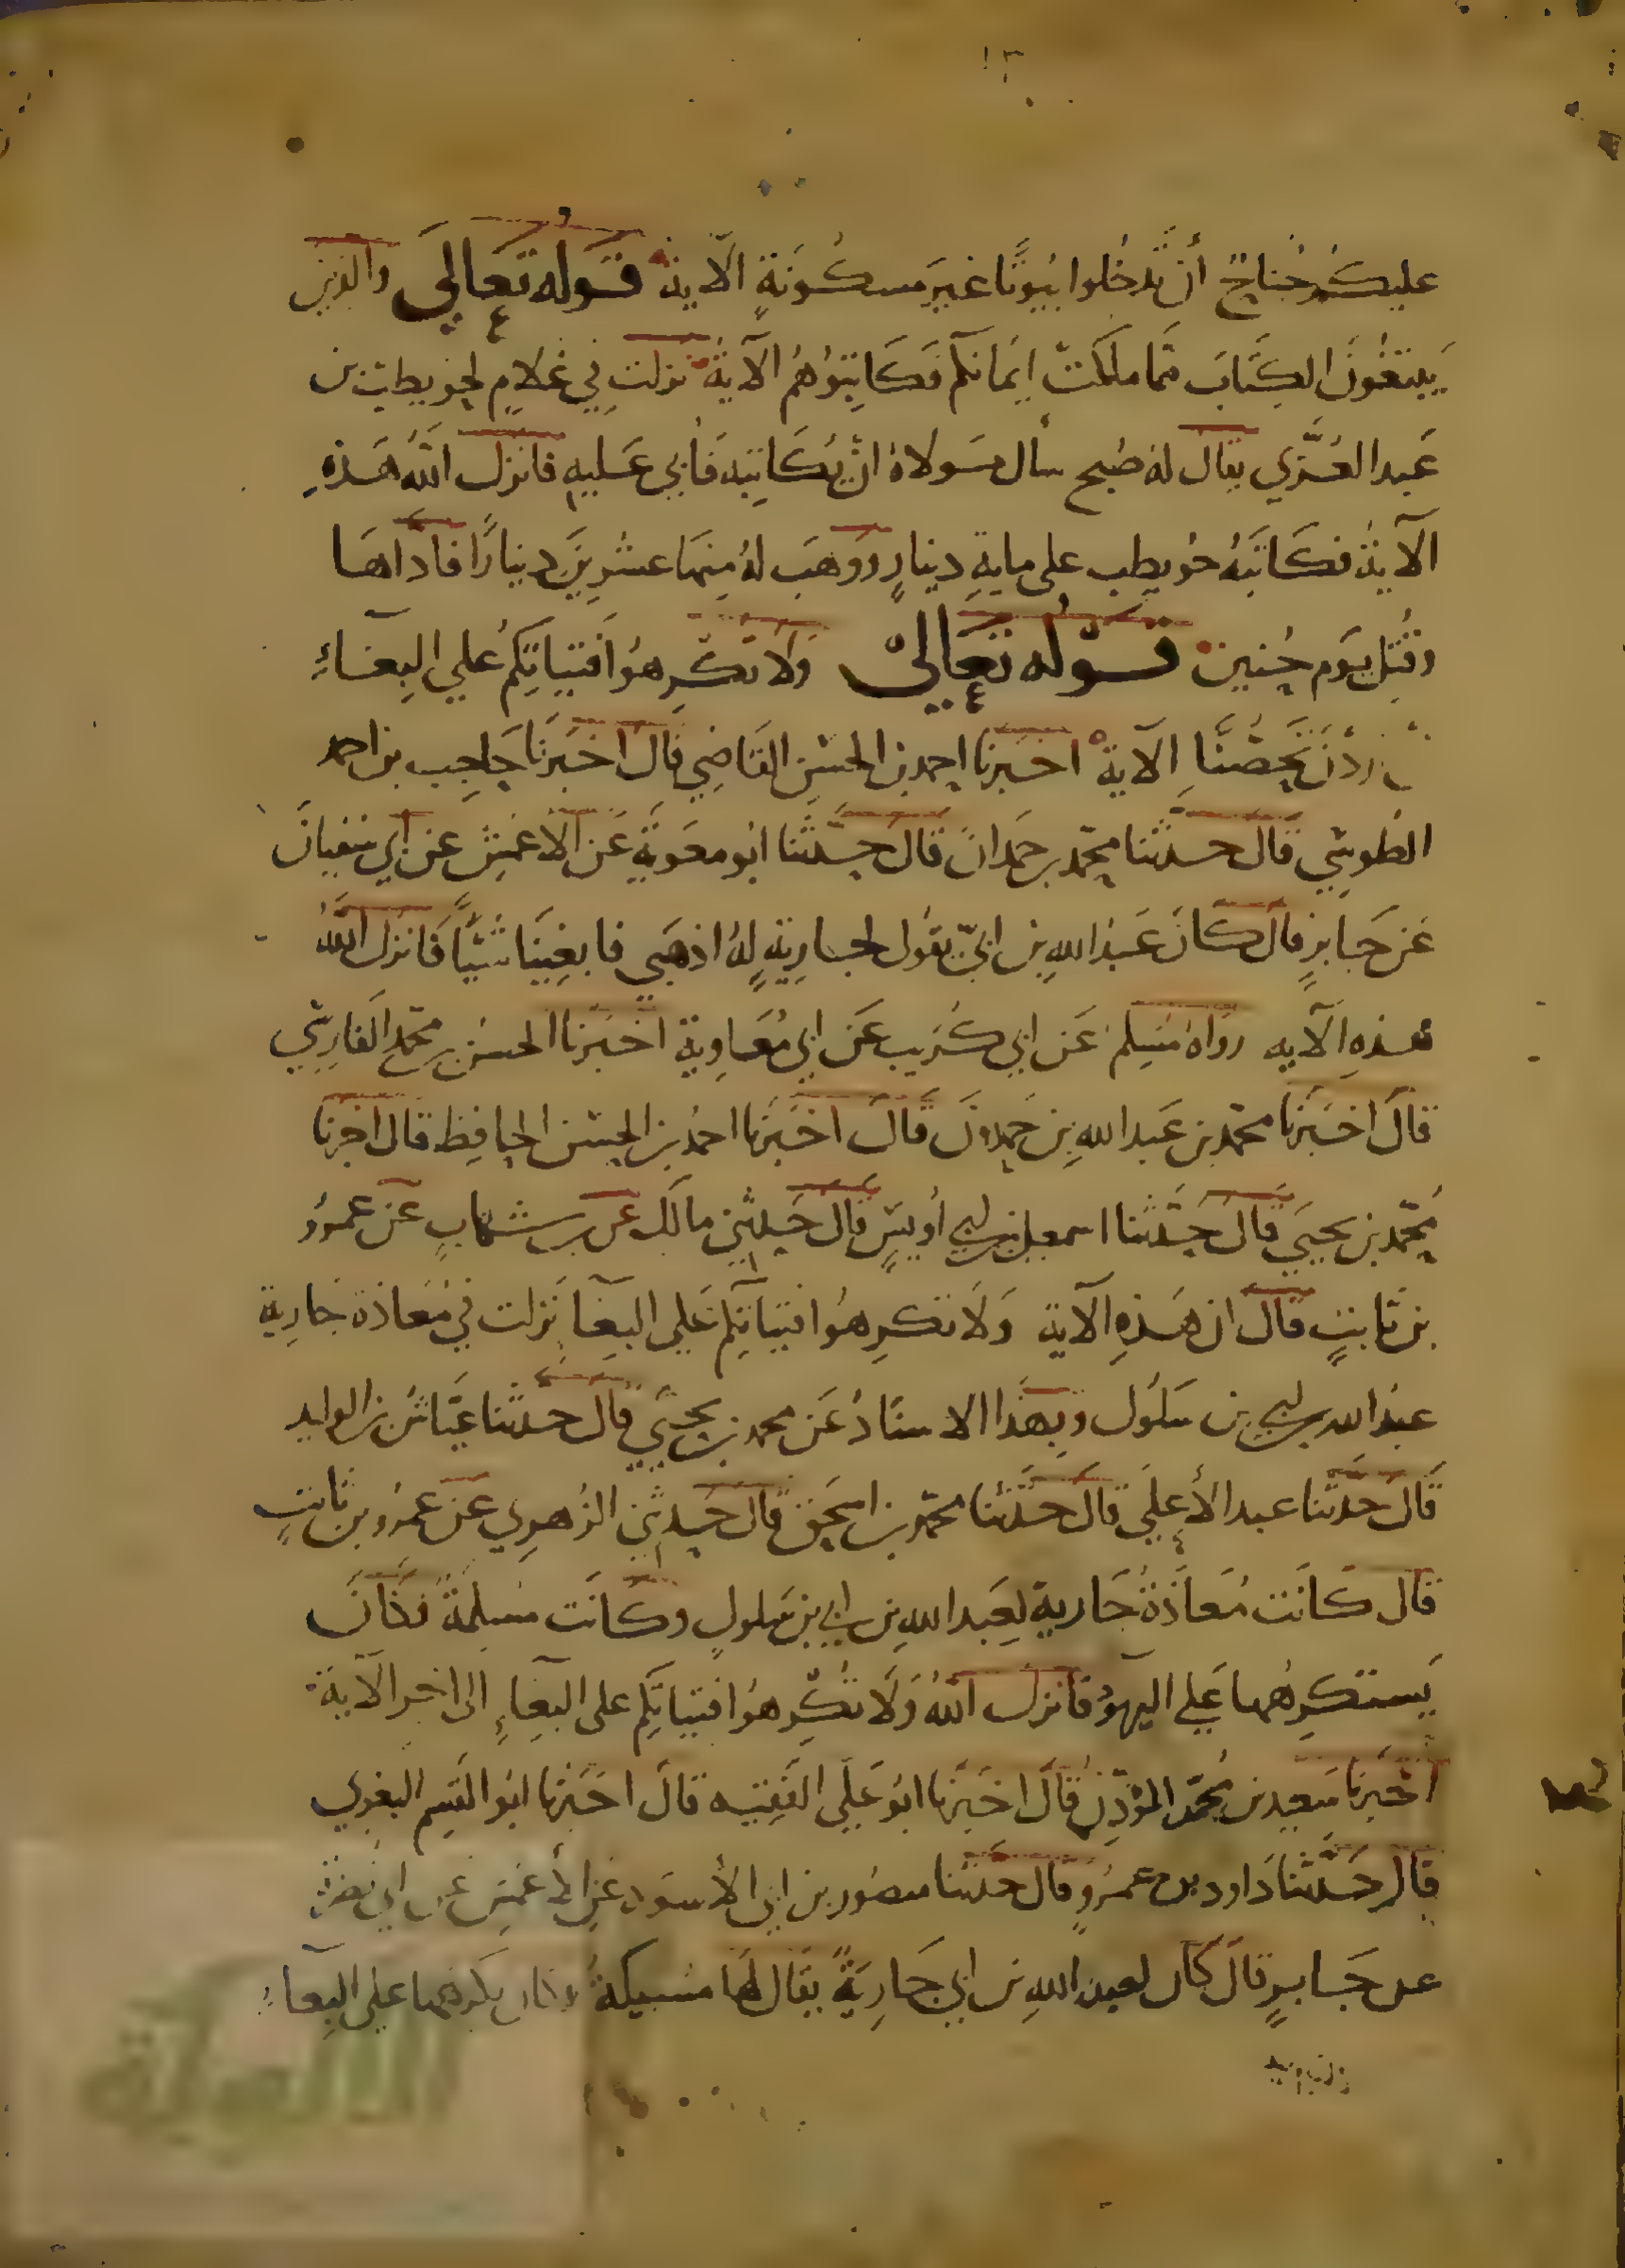 ١٣
عليكم جُناحٌ أن تدخلوا بيُوتًا غيرَ مسكُونَةٍ الآية قَولُه تَعَالى والذين
يَبتغُونَ الكِتَابَ ممَّا ملكَتْ ايمَانكُم فَكَاتِبُوهُم الآيةُ نزلت في غلامٍ لحويطب بن
عَبدِ العُزَّي يقال لهُ صُبيح سأل مَولاهُ انْ يُكَاتِبَهُ فَأبى عَليهِ فانزل اللهُ هَذهِ
الآيةُ فكَاتَبَهُ حُويطب على مايةِ دينارٍ ووَهَبَ لهُ مِنهَا عشرِينَ دينارًا فادَّاهَا
وقُتِلَ يوَم حُنين قَولُه تعَالىَ وَلا تكْرِهُوا فَتيَاتِكمُ عَلي البِغَاءِ
اردْنَ تَحَصُّنًا الآية اخبَرنا احمد بن الحسَنِ القَاضِي قالَ اخبَرَنا حَاجِب بن احمد
الطُوسِي قَالَ حَدثنا محمّد بن حَمدانَ قَالَ حَدّثَنا ابُو معَوِيَةَ عَن الأَعْمَش عَن أَبي سُفيانَ
عَن جَابِرٍ قالَ كَانَ عَبدُ اللهِ بن ابيّ يقُول لجارِيَةٍ لهُ اذهَبي فابغِينَا شَيْئًا فَانزل اللهُ
هَذهِ الآيه رواهُ مُسِلم عَن ابي كُرَيب عَن ابي مُعَاوِية اخبَرنا الحسَن بن محمّد الفَارِسي
قالَ اخبَرنا محمّد بن عَبد اللهِ بن حَمدونَ قَالَ اخبَرَنا احمَدُ بن الحسَن الحافِظ قال اخبرنا
مُحّمد بن يحيَي قالَ حَدَّثنا اسمعيل بن ابي أُويسٍ قال حَدثِني مالك عن بن شهابٍ عَن عمروُ
بن ثَابتٍ قَال ان هَذهِ الآية وَلَا تكرِهُوا فتياتِكم عَلى البِغَآ نَزلت في مُعَاذة جَارِية
عبدُ الله بن ابي بن سَلُول وَبِهَذا الاسنَادُ عَن محمد بن يحيَي قَالَ حَدثنا عيَّاش بن الوليد
قَالَ حَدثنا عبد الأَعلَي قالَ حَدَّثنا محمّد بن اسحَق قالَ حَدثِني الزُهرِي عَن عمرُو بن ثَابتٍ
قَال كَانت مُعَاذَةُ جَاريةً لِعَبد اللهِ بن ابي بن سَلولٍ وكَانَت مُسلِمَةً فَكَانَ
يَستكرِهُها عَلي اليهودُ فانزل اللهُ وَلَا تُكرِهُوا فتياتِكم على البِغَاءِ الى اخر الآية
أخبَرنا سَعيد بن مُحمّد المؤذن قَالَ اخبَرنا ابُو عَلي الفَقِيه قالَ اخبَرنا ابُو القَسِم البغوِي
قال حَدَّثنا دَاود بن عمرُوٍ قال حَدثنا منصُور بن ابي الأسوَد عَن الأَعْمَش عن ابي نضرة
عن جَابرٍ قالَ كان لعبد اللهِ بن ابي جَاريَةً يقال لهَا مُسيكةُ وكان يكرهها على البِغآءِ